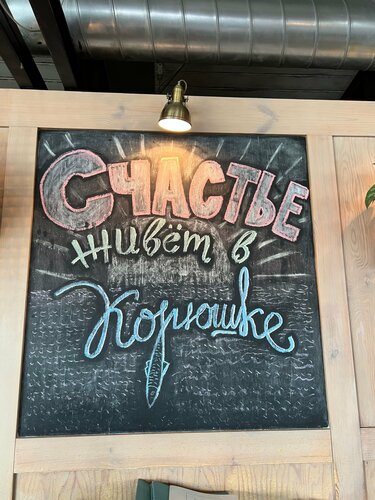 Счастье
живёт в
Корюшке